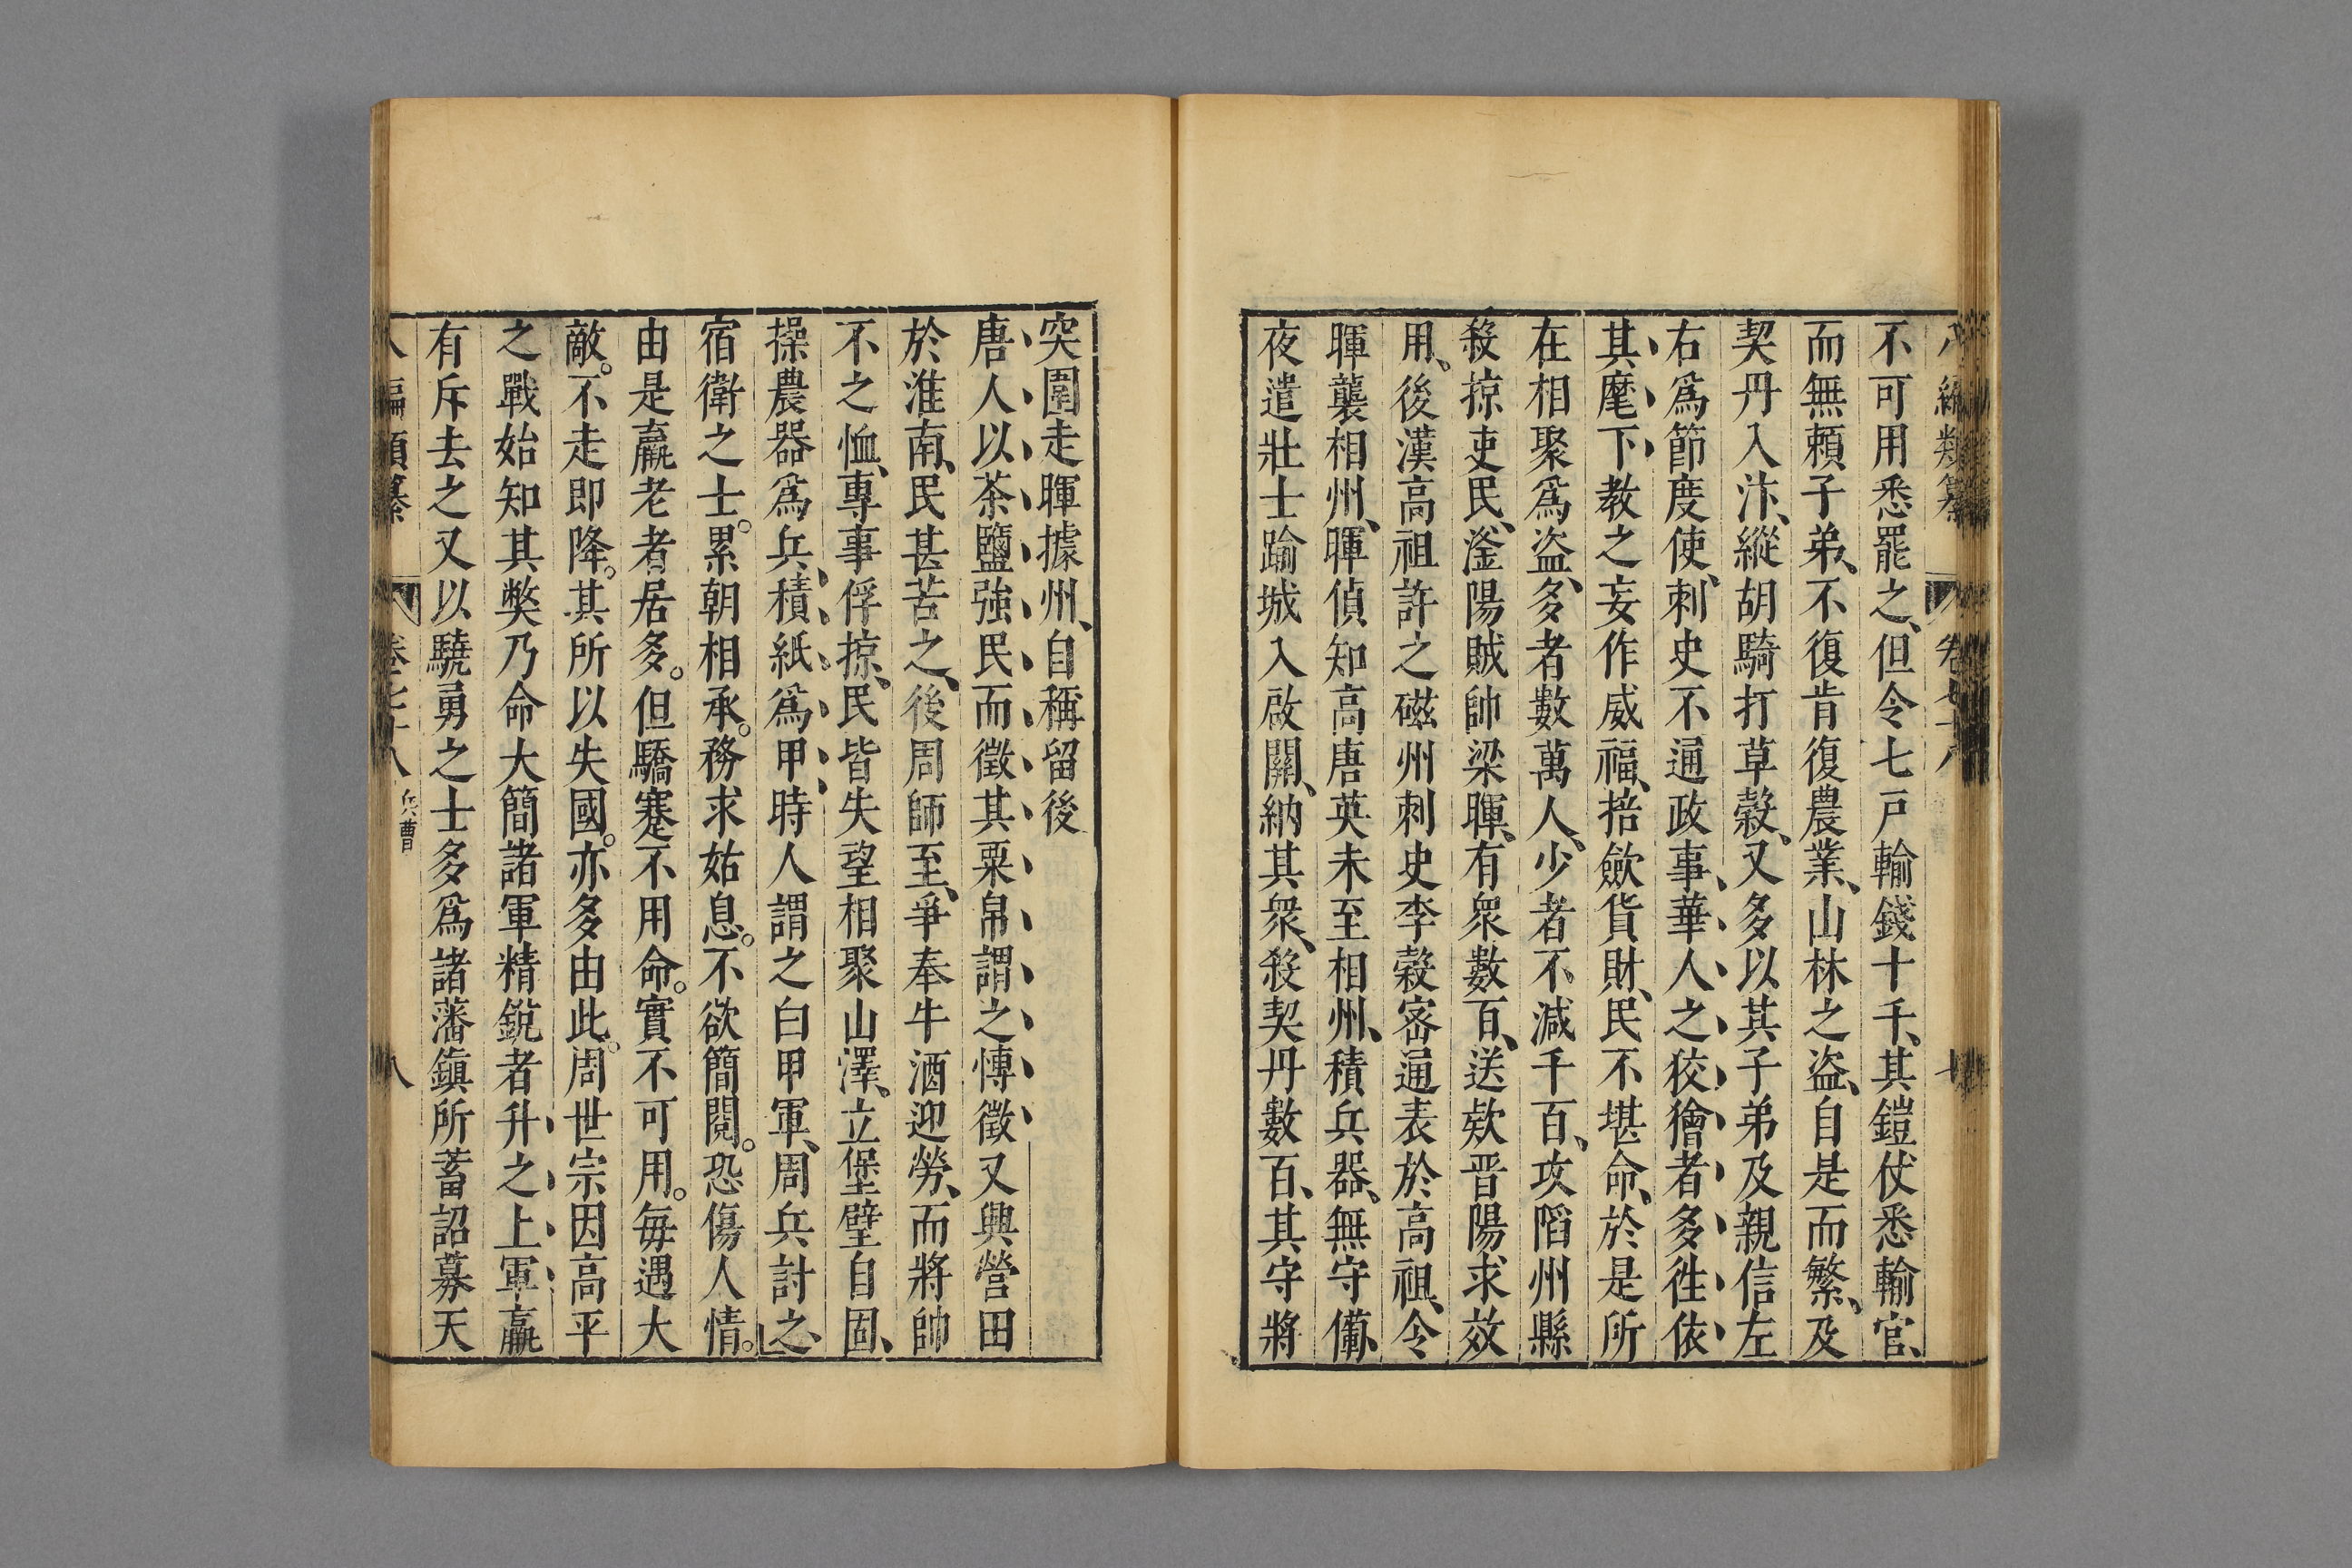 不可用悉罷之、但令七戸輸錢十千、其鎧仗悉輸官、
而無頼子弟、不復肯復農業、山林之盗、自是而繁、及
契丹入汴、縱胡騎打草穀、又多以其子弟及親信左
右爲節度使、刺史不通政事、華人之狡獪者多徃依
其麾下教之妄作威福、掊歛貨財、民不堪命、於是所
在相聚爲盗、多者數萬人、少者不減千百、攻䧟州縣
殺掠吏民、滏陽賊帥梁暉、有衆數百、送欵晋陽求效
用、後漢高祖許之磁州刺史李穀宻通表於高祖、令
暉襲相州、暉偵知高唐英未至相州、積兵器、無守僃、
夜遣壯士踰城入啟關、納其衆、殺契丹數百、其守將
突圍走暉據州、自稱留後
唐人以茶鹽強民而徵其粟帛謂之慱徵又興營田
於淮南、民甚苦之、後周師至、爭奉牛酒迎勞、而將帥
不之恤、專事俘掠、民皆失望相聚山澤、立堡壁自固、
操農器爲兵、積紙爲甲、時人謂之白甲軍、周兵討之、
宿衛之士。累朝相承。務求姑息。不欲簡閱。恐傷人情。
由是羸老者居多。但驕蹇不用命。實不可用。每遇大
敵。不走即降。其所以失國。亦多由此。周世宗因高平
之戰始知其弊乃命大簡諸軍精銳者升之上軍羸
有斥去之又以驍勇之士多爲諸藩鎮所蓄詔募天
八編類纂 卷七十八 兵曹 八